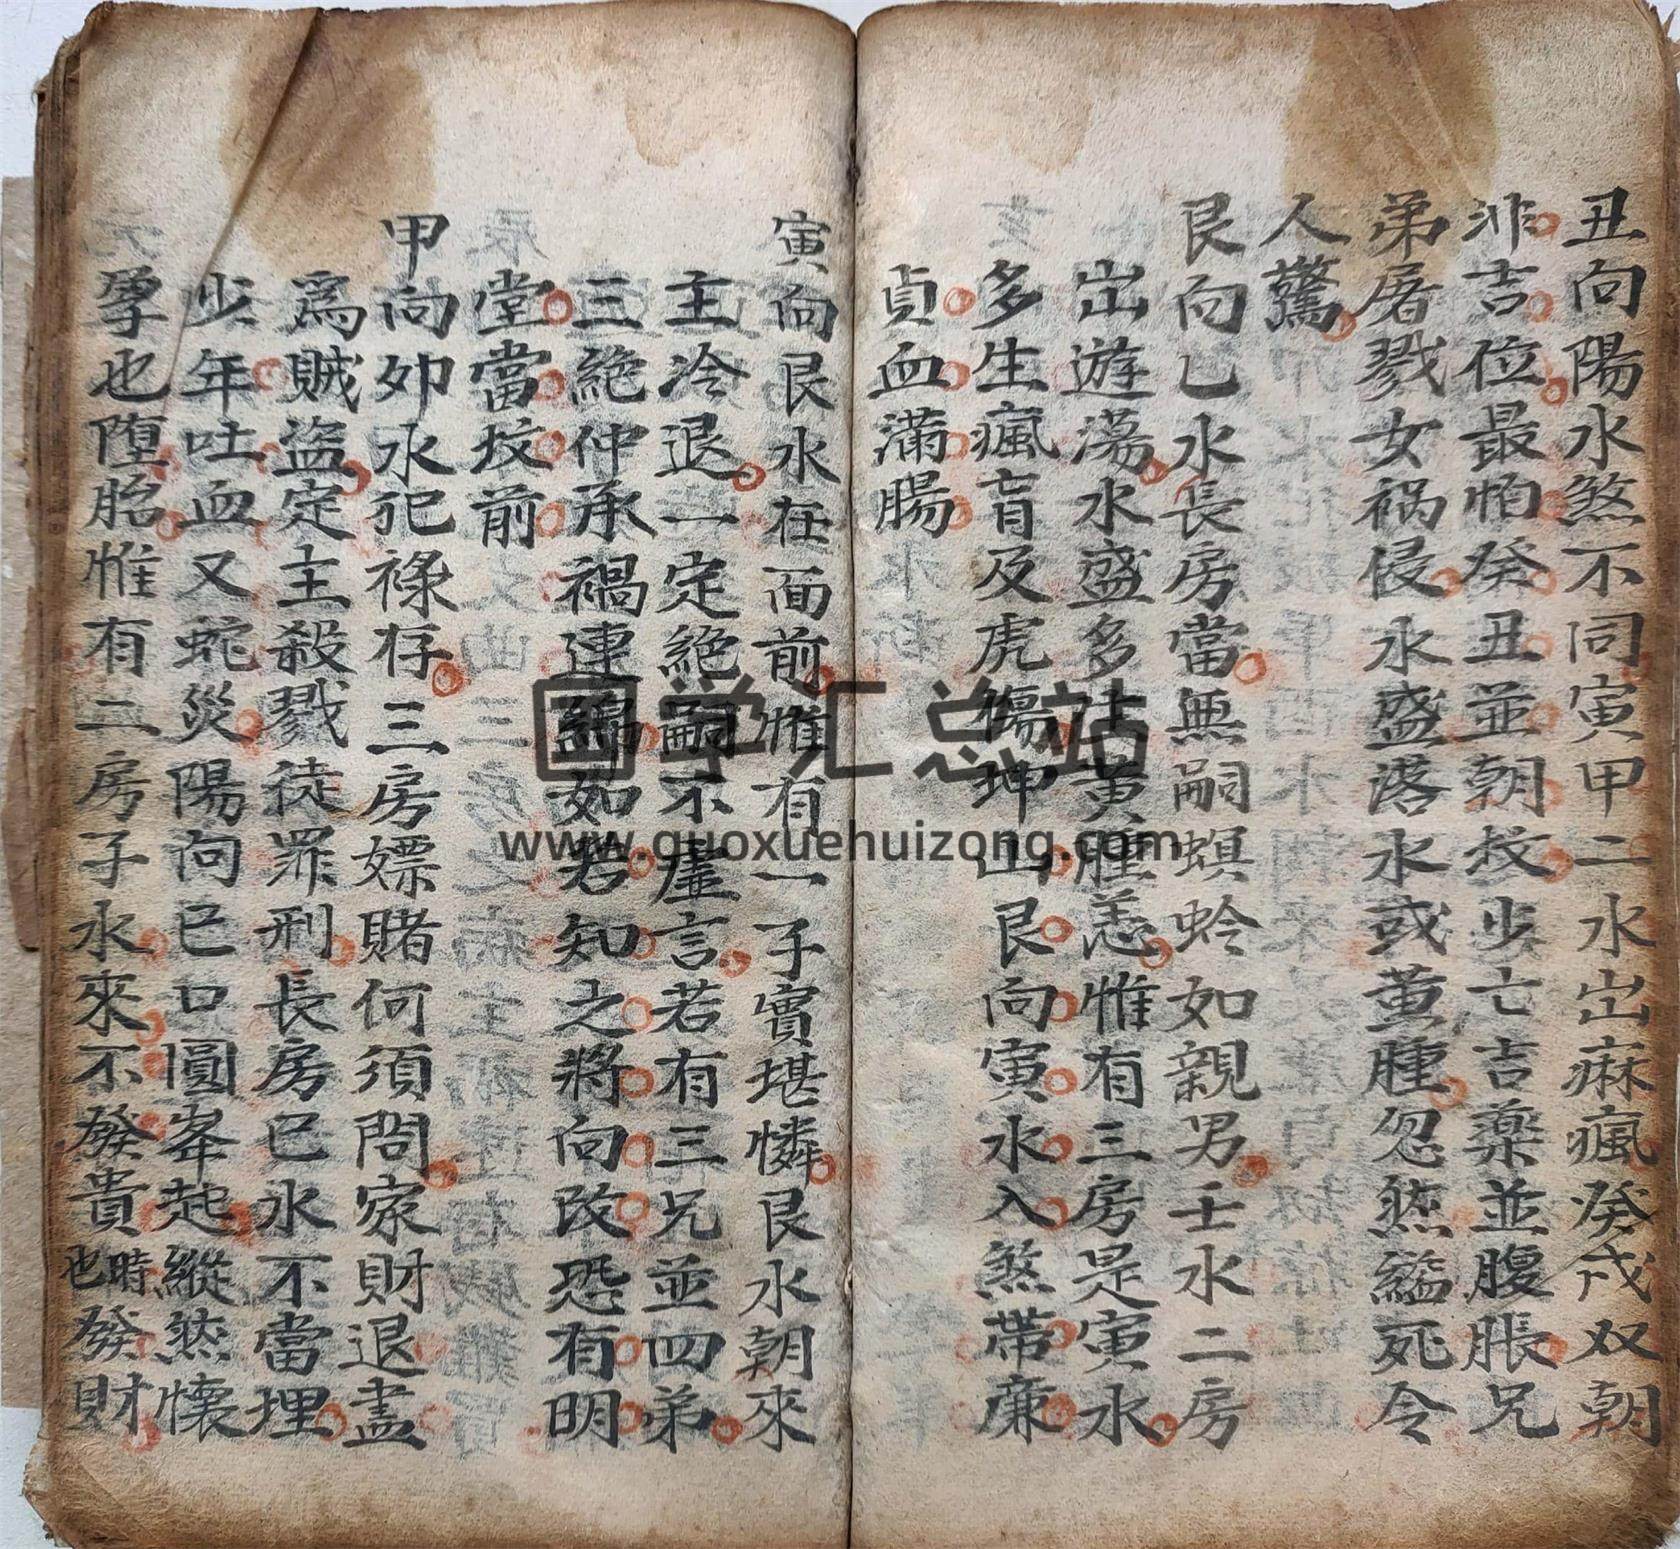 丑向陽水煞不同寅甲二水出痳瘋癸戌双朝
非吉位最怕癸丑並朝坟少亡吉藥並腹脹兄
弟屠戮女禍侵水盛落水或黄腫忽然縊死令
人驚
艮向乙水長房當無嗣螟蛉如親男壬水二房
出遊蕩水盛多生黄腫恙惟有三房是寅水
多生瘋盲及虎傷坤山艮向寅水入煞帶廉
貞血滿腸
寅向艮水在面前惟有一子實堪憐艮水朝來
主冷退一定絕嗣不虛言若有三兄並四弟
三絕仲承禍連綿如若知之將向改恐有明
堂當坟前
甲向夘水犯祿存三房嫖賭何須問家財退盡
爲賊盜定主殺戮徒罪刑長房巳水不當埋
少年吐血又蛇災陽向巳口圓峯起縱然懷
孕也墮胎惟有二房子水來不發貴時也發財
國学汇总站
www.guoxuehuizong.com